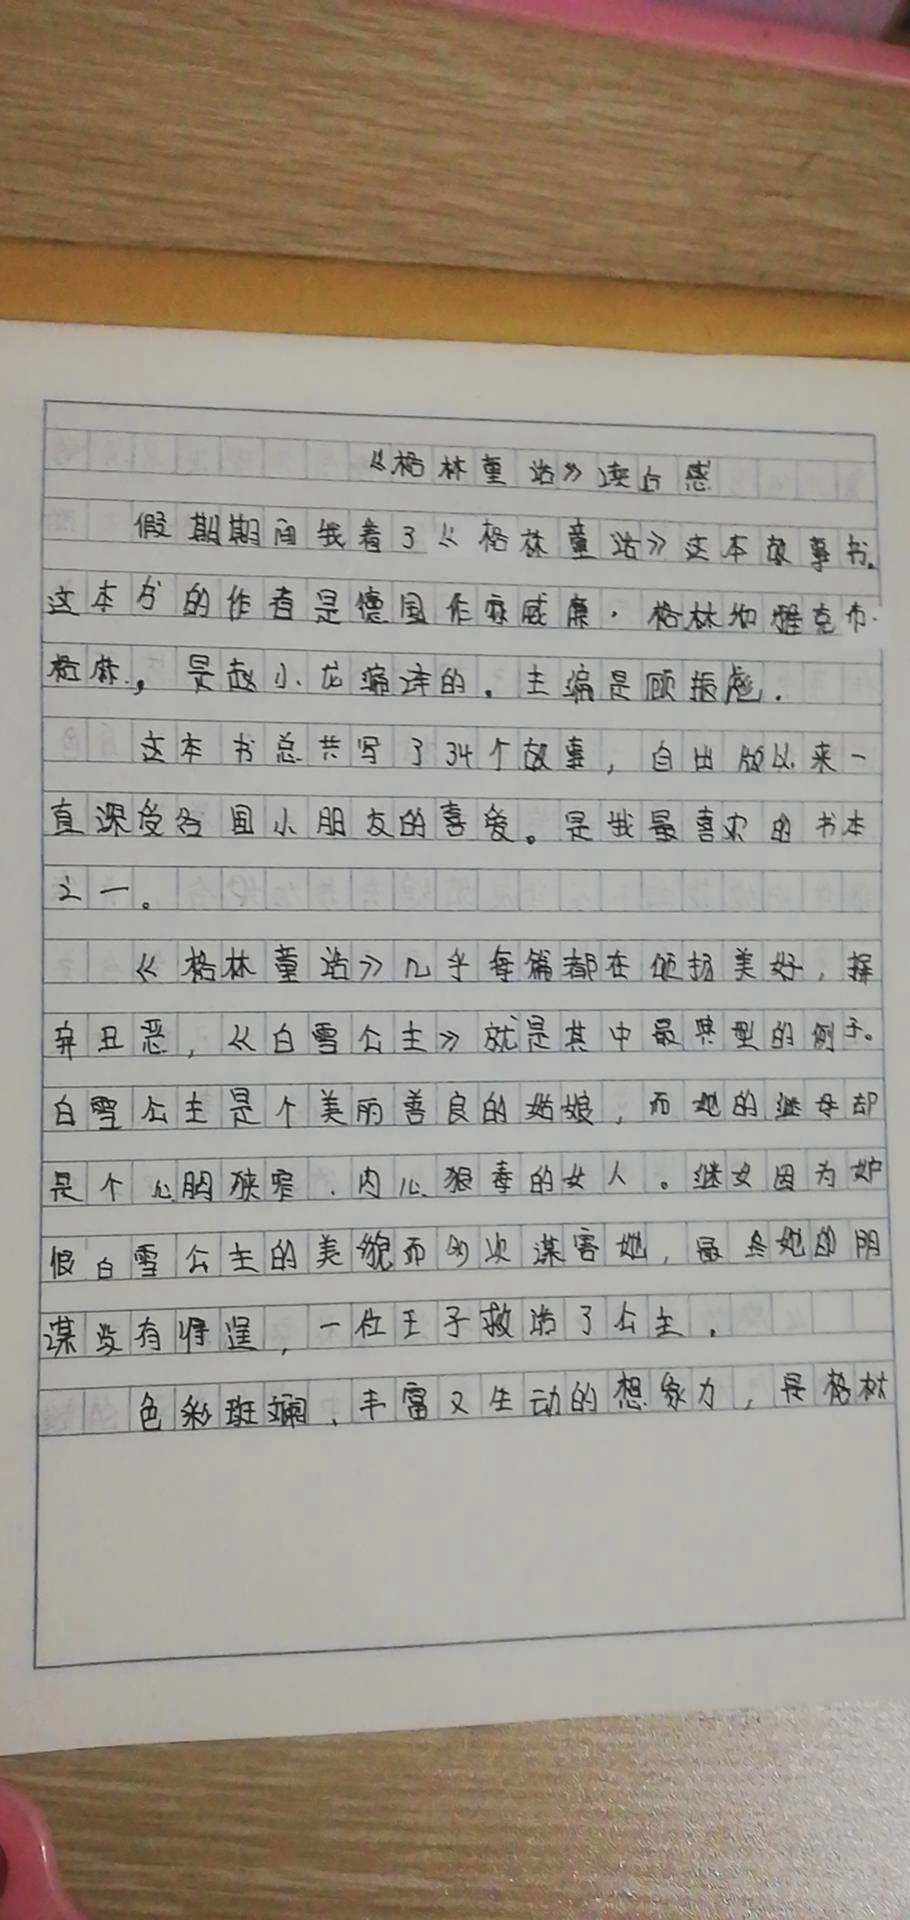 《格林童话》读后感
假期期间我看了《格林童话》这本故事书。
这本书的作者是德国作家威廉·格林和雅克布·
格林，是赵小龙编译的。主编是顾振彪.
这本书总共写了34个故事，自出版以来一
直深受各国小朋友的喜爱。是我最喜欢的书本
之一。
《格林童话》几乎每篇都在颂扬美好，摒
弃丑恶，《白雪公主》就是其中最典型的例子。
白雪公主是个美丽善良的姑娘，而她的继母却
是个心胸狭窄、内心狠毒的女人。继女因为妒
恨白雪公主的美貌而多次谋害她，最终她的阴
谋没有得逞，一位王子救活了公主.
色彩斑斓、丰富又生动的想象力，是格林